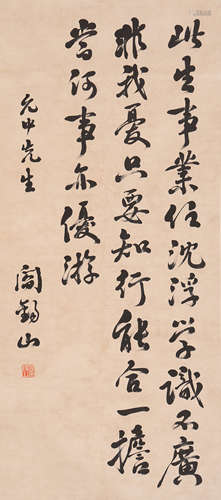 此生事業任沈浮学識不廣
非我憂只要知行能合一擔
當何事亦優游
允中先生
閻錫山